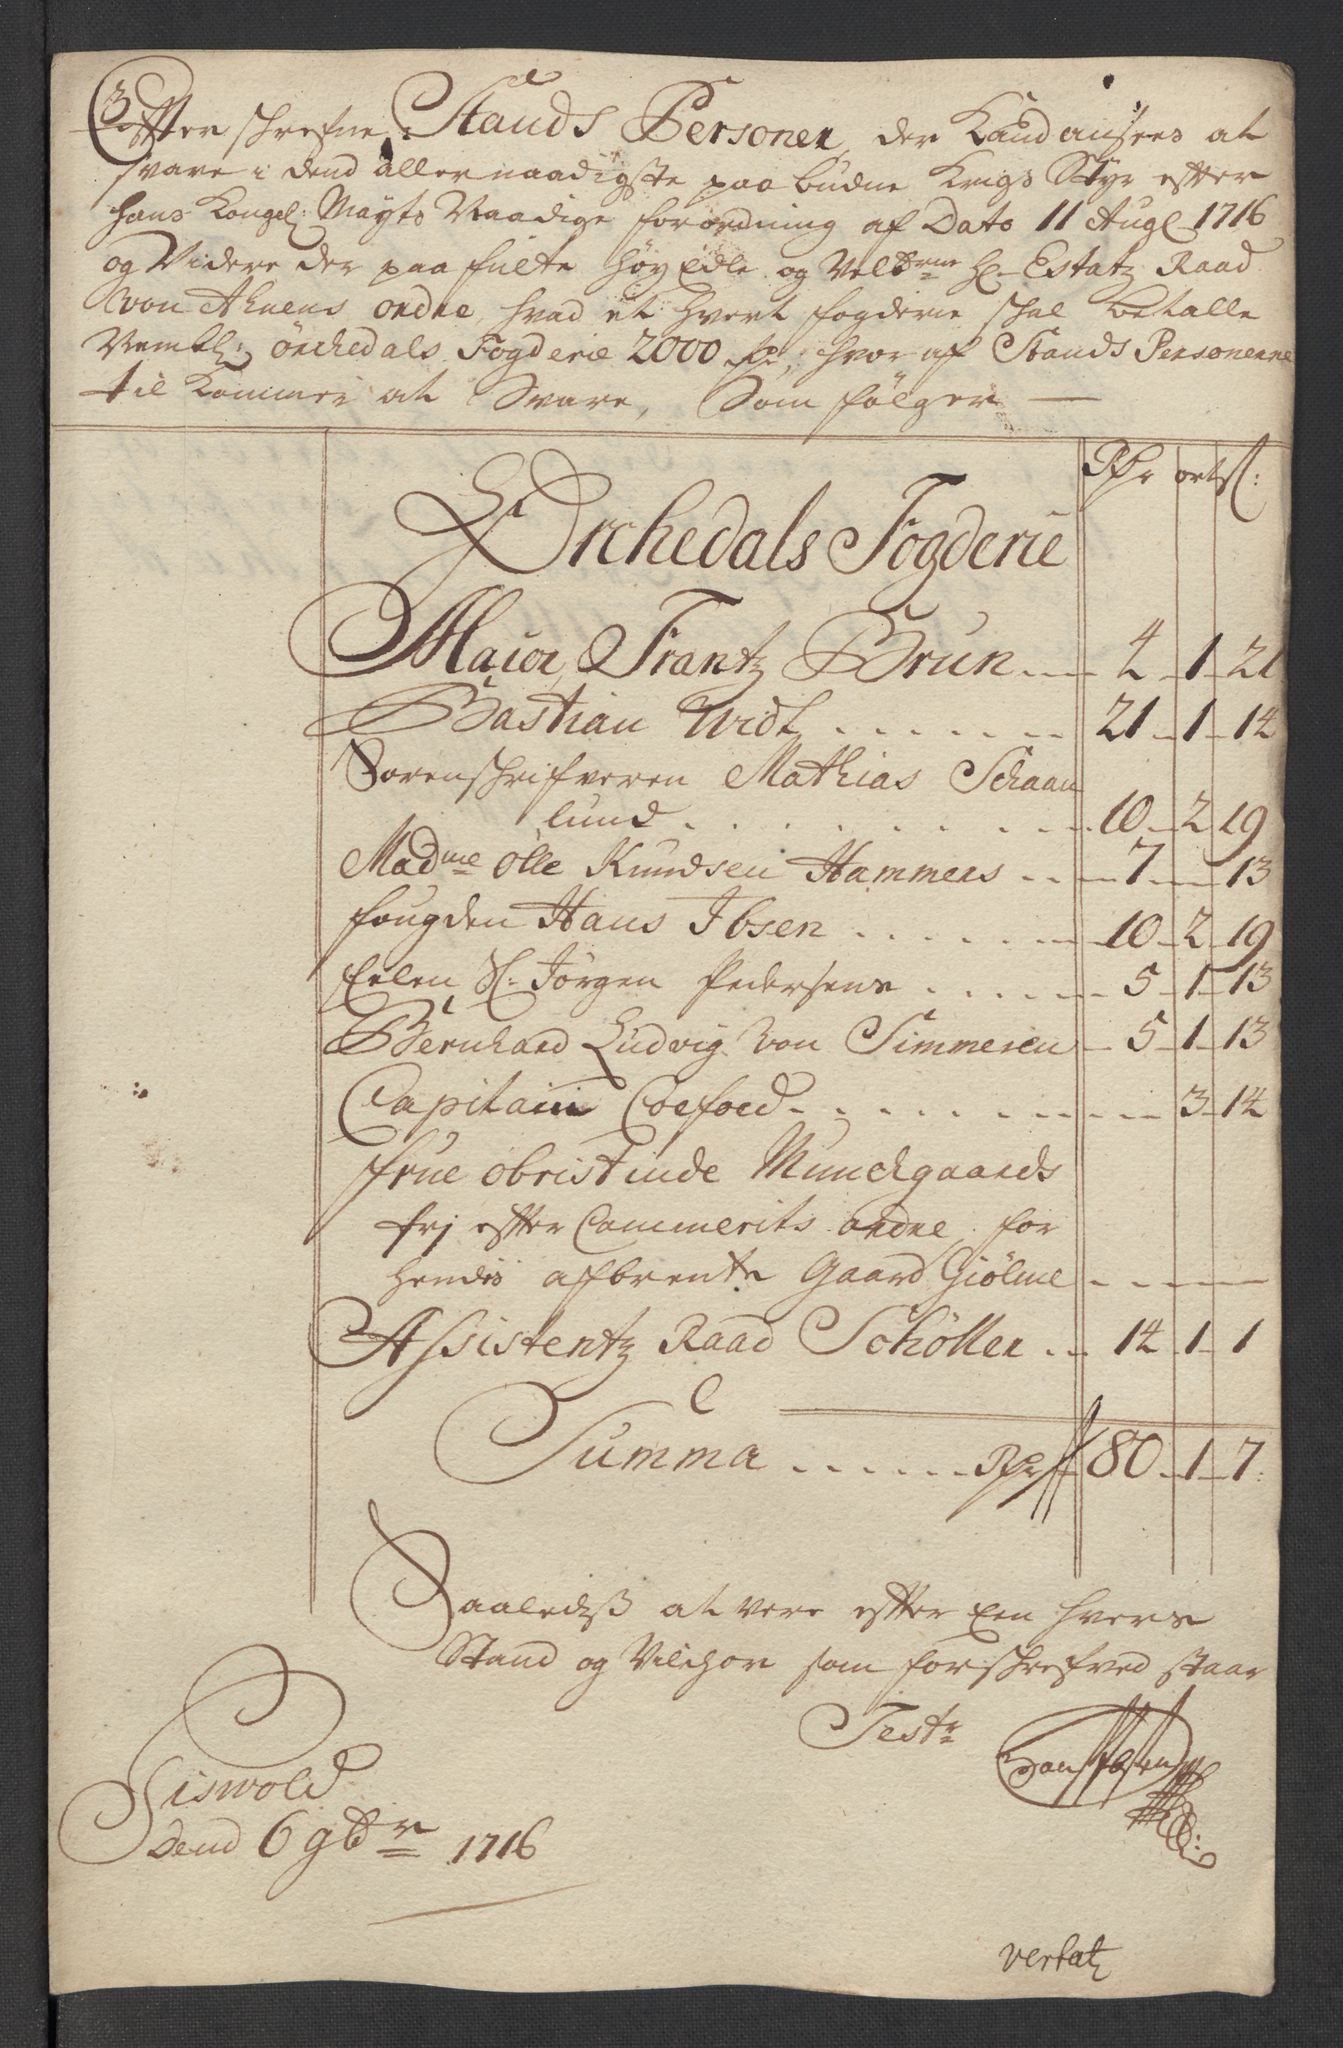 3
Effter schrefne Stands Personer, der Kand ansees at
svare i dend allernaadigste paabudne Krigs Styr effter
hans Kongel: Mayts Naadige forordning af Dato 11 Augl 1716
og Videre der paa fulte Høy Edle og Velbrne Hl. Estatz Raad
von Ahnens ordre, hvad et hvert fogderie schal betalle
Nemtl: Örchedals Fogderie 2000 Rdr, hvor af Stands Personerne
til kommer at Svare, Som følger
Rdr ort sl:
Orchedals Fogderie
Maior Frantz Brun 4 1 21
Bastian Widt 21 1 14
Sorenschrifveren Mathias Schaan
lund 10 2 19
Madme Olle Knudsen Hammers 7 13
fougden Hans Ibsen 10 2 19
Eelen Sl: Jörgen Pedersens 5 1 13
Bernhard Ludvig von Simmeren 5 1 13
Capitain Coefoed 3 14
frue Obristinde Munchgaards
frj effter Cammerits ordre, for
hendis afbrente Gaard Giölme
Assistentz Raad Schöller 14 1 1
Summa Rdr 80 1 7
Saaledß at vere effter Een hvers
Stand og Vilchor som forschrefved staar
Test
Siswold
dend 6 9br 1716
Hans Ibsen
vertatz